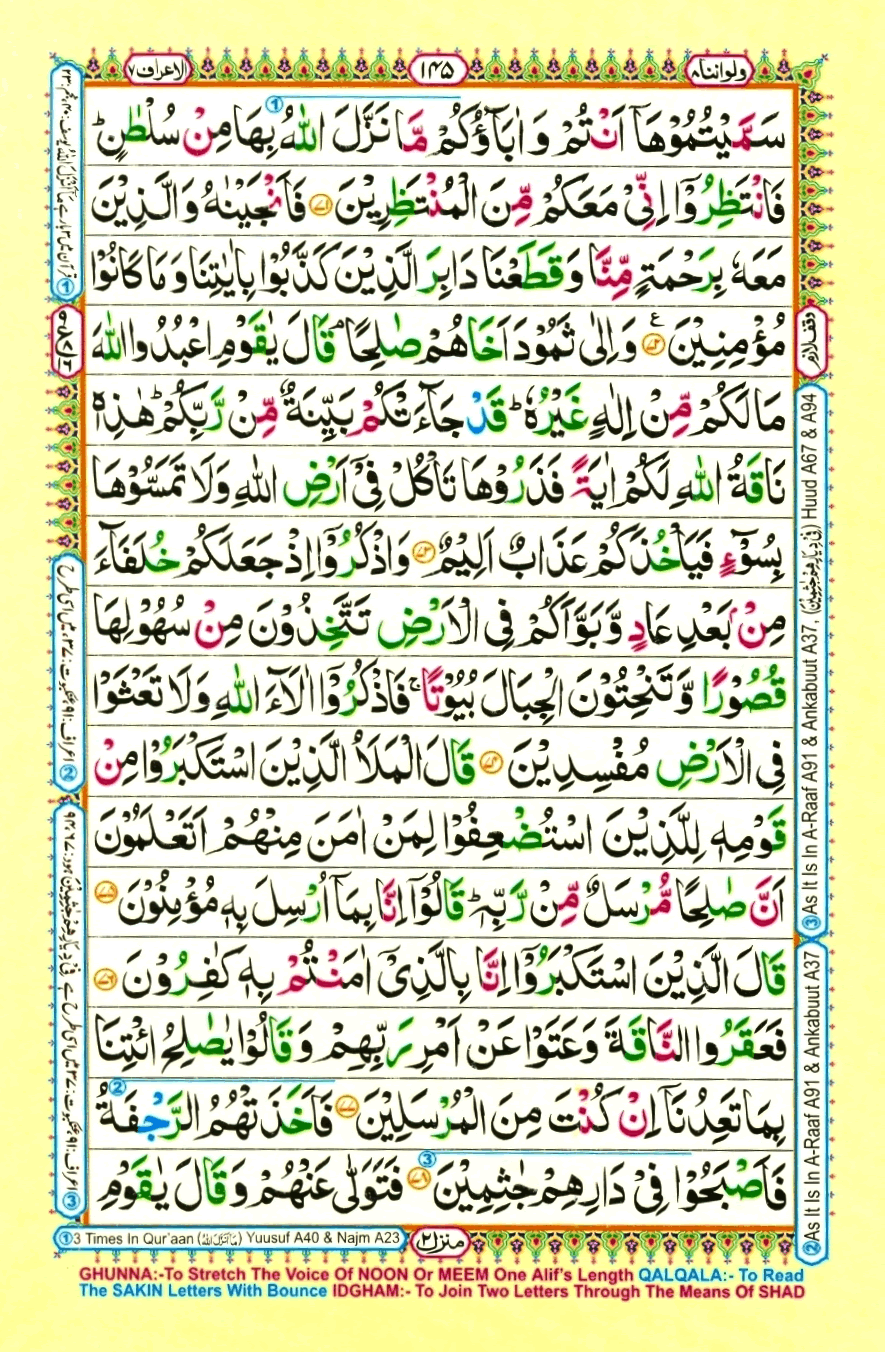 ولواننا ٨
١٤٥
الاعراف ٧
سَمَّيْتُمُوْهَاۤ اَنْتُمْ وَ اٰبَآؤُكُمْ مَّا نَزَّلَ اللّٰهُ بِهَا مِنْ سُلْطٰنٍ ؕ
فَانْتَظِرُوْۤا اِنِّيْ مَعَكُمْ مِّنَ الْمُنْتَظِرِيْنَ ﴿۷۱﴾ فَاَنْجَيْنٰهُ وَ الَّذِيْنَ
مَعَهٗ بِرَحْمَةٍ مِّنَّا وَ قَطَعْنَا دَابِرَ الَّذِيْنَ كَذَّبُوْا بِاٰيٰتِنَا وَ مَا كَانُوْا
مُؤْمِنِيْنَ ﴿۷۲﴾ وَ اِلٰى ثَمُوْدَ اَخَاهُمْ صٰلِحًا ۘ قَالَ يٰقَوْمِ اعْبُدُوا اللّٰهَ
مَا لَكُمْ مِّنْ اِلٰهٍ غَيْرُهٗ ؕ قَدْ جَآءَتْكُمْ بَيِّنَةٌ مِّنْ رَّبِّكُمْ ؕ هٰذِهٖ
نَاقَةُ اللّٰهِ لَكُمْ اٰيَةً فَذَرُوْهَا تَاْكُلْ فِيْۤ اَرْضِ اللّٰهِ وَ لَا تَمَسُّوْهَا
بِسُوْٓءٍ فَيَاْخُذَكُمْ عَذَابٌ اَلِيْمٌ ﴿۷۳﴾ وَ اذْكُرُوْۤا اِذْ جَعَلَكُمْ خُلَفَآءَ
مِنْۢ بَعْدِ عَادٍ وَّ بَوَّاَكُمْ فِي الْاَرْضِ تَتَّخِذُوْنَ مِنْ سُهُوْلِهَا
قُصُوْرًا وَّ تَنْحِتُوْنَ الْجِبَالَ بُيُوْتًا ۚ فَاذْكُرُوْۤا اٰلَآءَ اللّٰهِ وَ لَا تَعْثَوْا
فِي الْاَرْضِ مُفْسِدِيْنَ ﴿۷۴﴾ قَالَ الْمَلَاُ الَّذِيْنَ اسْتَكْبَرُوْا مِنْ
قَوْمِهٖ لِلَّذِيْنَ اسْتُضْعِفُوْا لِمَنْ اٰمَنَ مِنْهُمْ اَتَعْلَمُوْنَ
اَنَّ صٰلِحًا مُّرْسَلٌ مِّنْ رَّبِّهٖ ؕ قَالُوْۤا اِنَّا بِمَاۤ اُرْسِلَ بِهٖ مُؤْمِنُوْنَ ﴿۷۵﴾
قَالَ الَّذِيْنَ اسْتَكْبَرُوْۤا اِنَّا بِالَّذِيْۤ اٰمَنْتُمْ بِهٖ كٰفِرُوْنَ ﴿۷۶﴾
فَعَقَرُوا النَّاقَةَ وَ عَتَوْا عَنْ اَمْرِ رَبِّهِمْ وَ قَالُوْا يٰصٰلِحُ ائْتِنَا
بِمَا تَعِدُنَاۤ اِنْ كُنْتَ مِنَ الْمُرْسَلِيْنَ ﴿۷۷﴾ فَاَخَذَتْهُمُ الرَّجْفَةُ
فَاَصْبَحُوْا فِيْ دَارِهِمْ جٰثِمِيْنَ ﴿۷۸﴾ فَتَوَلّٰى عَنْهُمْ وَ قَالَ يٰقَوْمِ
وقف لازم
③ As It Is In A-Raaf A91 & Ankabuut A37, (فِيْ دِيَارِهِمْ جٰثِمِيْنَ) Huud A67 & A94
② As It Is In A-Raaf A91 & Ankabuut A37
① 3 Times In Qur'aan (مَاۤ اَنْزَلَ اللّٰهُ) Yuusuf A40 & Najm A23
منزل ٢
GHUNNA:-To Stretch The Voice Of NOON Or MEEM One Alif's Length QALQALA:- To Read
The SAKIN Letters With Bounce IDGHAM:- To Join Two Letters Through The Means Of SHAD